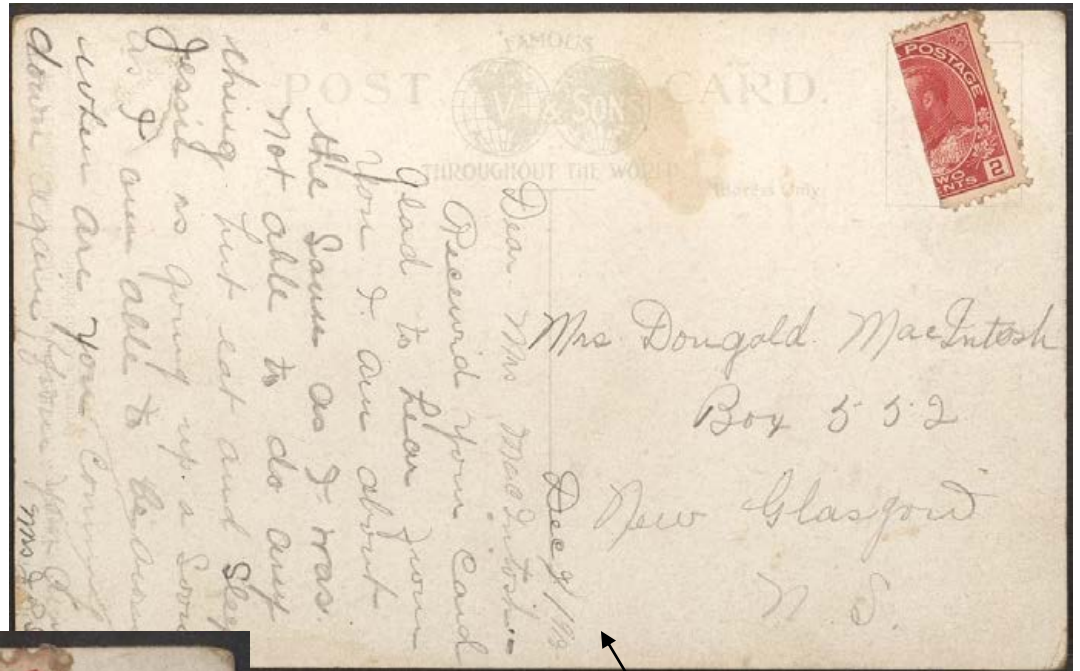 FAMOUS
POST CARD.
V & SONS
THROUGHOUT THE WORLD
Address Only
POSTAGE
TWO
CENTS
2
Mrs Dougald MacIntosh
Box 552
New Glasgow
N. S.
Dec 9/
Dear Mrs MacIntosh
Received your card
Glad to hear from
you I am about
the Same as I was.
Not able to do any
thing but eat and Sleep
Jessie is going up a Soon
as I am able to be
when are you Coming
down again